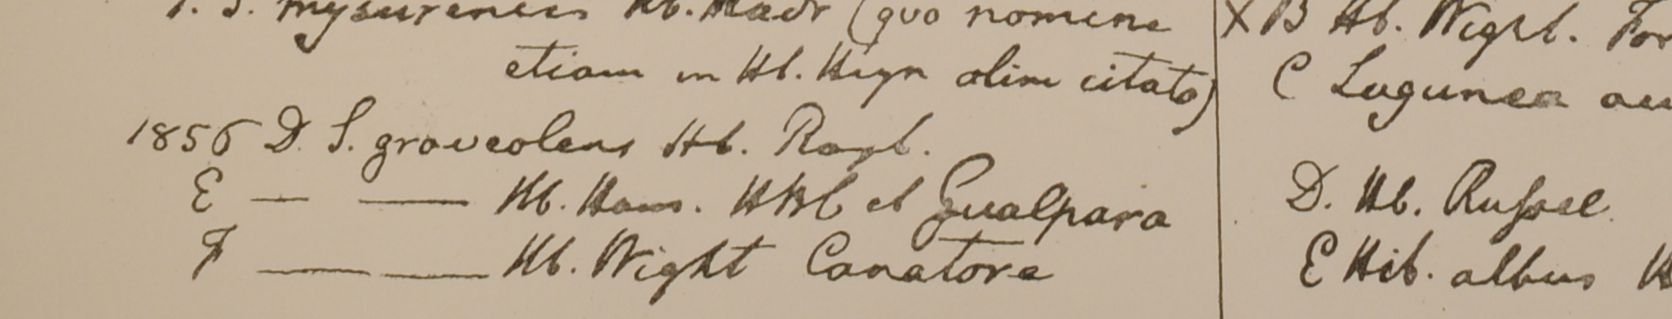 S. mysurensis Hb. Madr (quo nomine
etiam in Hb. Heyn olim citato)
1856 D. S. graveolens Hb. Royl.
E — — Hb. Ham. HBC et Gualpara
F — — Hb. Wight Canatore
X B Hb. Wight. For
C Lagunea au
D. Hb. Russel
E Hib. albus H